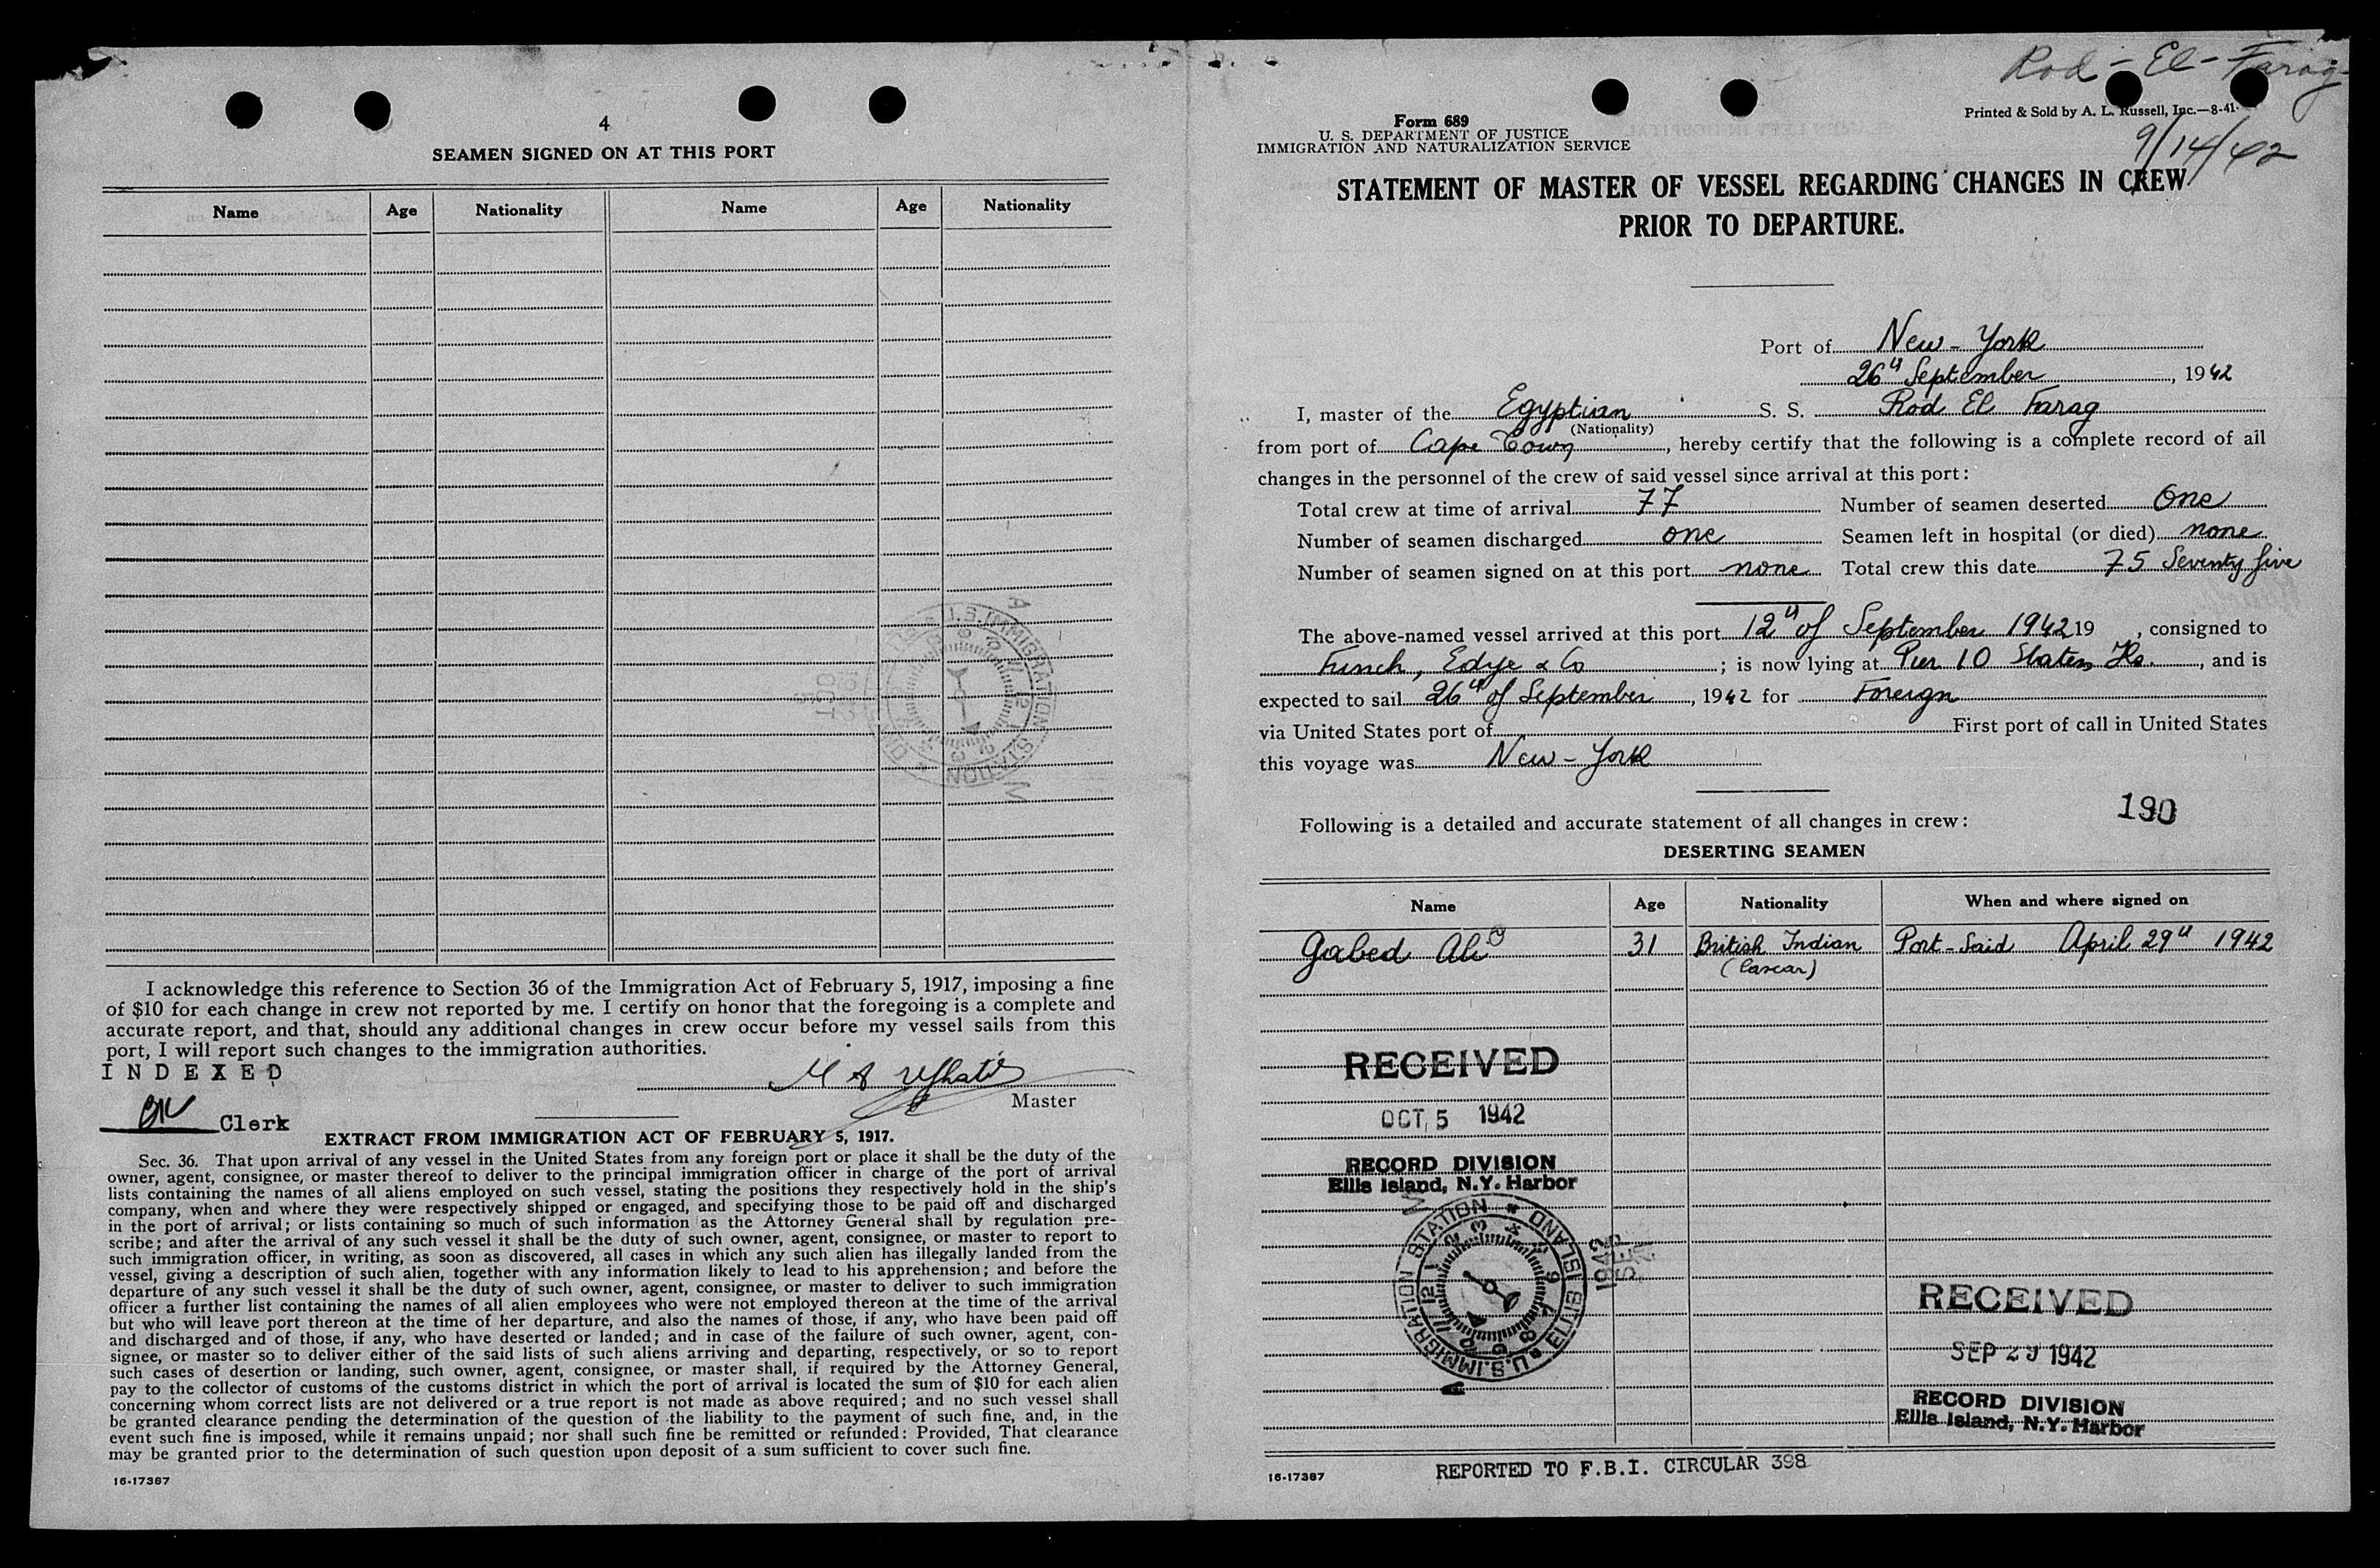 4
SEAMEN SIGNED ON AT THIS PORT
Name Age Nationality Name Age Nationality
U.S. IMMIGRATION STATION
I acknowledge this reference to Section 36 of the Immigration Act of February 5, 1917, imposing a fine
of $10 for each change in crew not reported by me. I certify on honor that the foregoing is a complete and
accurate report, and that, should any additional changes in crew occur before my vessel sails from this
port, I will report such changes to the immigration authorities.
INDEXED
Master
Clerk
EXTRACT FROM IMMIGRATION ACT OF FEBRUARY 5, 1917.
Sec. 36. That upon arrival of any vessel in the United States from any foreign port or place it shall be the duty of the
owner, agent, consignee, or master thereof to deliver to the principal immigration officer in charge of the port of arrival
lists containing the names of all aliens employed on such vessel, stating the positions they respectively hold in the ship's
company, when and where they were respectively shipped or engaged, and specifying those to be paid off and discharged
in the port of arrival; or lists containing so much of such information as the Attorney General shall by regulation pre-
scribe; and after the arrival of any such vessel it shall be the duty of such owner, agent, consignee, or master to report to
such immigration officer, in writing, as soon as discovered, all cases in which any such alien has illegally landed from the
vessel, giving a description of such alien, together with any information likely to lead to his apprehension; and before the
departure of any such vessel it shall be the duty of such owner, agent, consignee, or master to deliver to such immigration
officer a further list containing the names of all alien employees who were not employed thereon at the time of the arrival
but who will leave port thereon at the time of her departure, and also the names of those, if any, who have been paid off
and discharged and of those, if any, who have deserted or landed; and in case of the failure of such owner, agent, con-
signee, or master so to deliver either of the said lists of such aliens arriving and departing, respectively, or so to report
such cases of desertion or landing, such owner, agent, consignee, or master shall, if required by the Attorney General,
pay to the collector of customs of the customs district in which the port of arrival is located the sum of $10 for each alien
concerning whom correct lists are not delivered or a true report is not made as above required; and no such vessel shall
be granted clearance pending the determination of the question of the liability to the payment of such fine, and, in the
event such fine is imposed, while it remains unpaid; nor shall such fine be remitted or refunded: Provided, That clearance
may be granted prior to the determination of such question upon deposit of a sum sufficient to cover such fine.
16-17387
Rod-El-Farag
Printed & Sold by A. L. Russell, Inc.—8-41
Form 689
U. S. DEPARTMENT OF JUSTICE
IMMIGRATION AND NATURALIZATION SERVICE
9/14/42
STATEMENT OF MASTER OF VESSEL REGARDING CHANGES IN CREW
PRIOR TO DEPARTURE.
Port of New-York
26th September, 1942
I, master of the Egyptian S. S. Rod El Farag
(Nationality)
from port of Cape Town, hereby certify that the following is a complete record of all
changes in the personnel of the crew of said vessel since arrival at this port:
Total crew at time of arrival 77 Number of seamen deserted One
Number of seamen discharged one Seamen left in hospital (or died) none
Number of seamen signed on at this port none Total crew this date 75 Seventy five
The above-named vessel arrived at this port 12th of September 1942 19 , consigned to
Funch, Edye & Co ; is now lying at Pier 10 Staten Is. , and is
expected to sail 26th of September, 1942 for Foreign
via United States port of First port of call in United States
this voyage was New-York
190
Following is a detailed and accurate statement of all changes in crew:
DESERTING SEAMEN
Name Age Nationality When and where signed on
Gabed Ali 31 British Indian Port-Said April 29th 1942
(Lascar)
RECEIVED
OCT 5 1942
RECORD DIVISION
Ellis Island, N.Y. Harbor
U.S. IMMIGRATION STATION * ELLIS ISLAND *
1942
SEP
RECEIVED
SEP 29 1942
RECORD DIVISION
Ellis Island, N.Y. Harbor
16-17387
REPORTED TO F.B.I. CIRCULAR 398